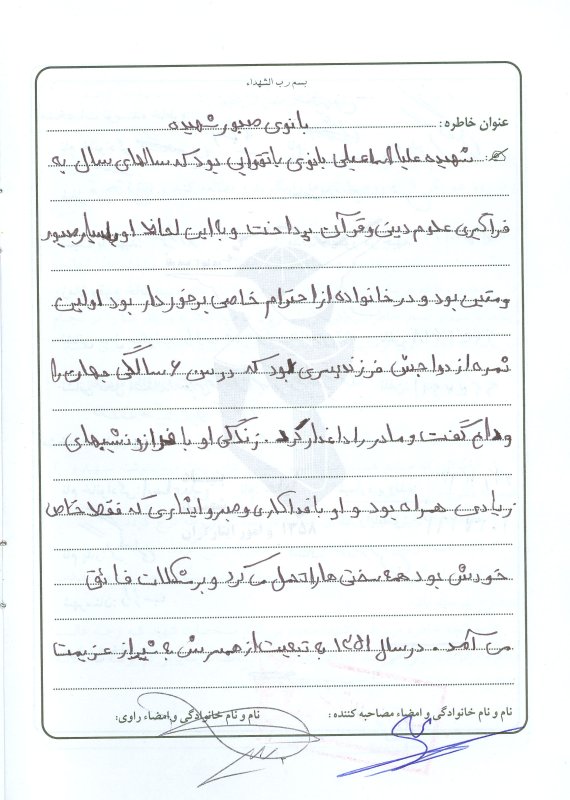 بسم رب الشهداء
عنوان خاطره: بانوی صبور شهیده
شهیده علیا اسماعیلی بانوی باتقوایی بود که سالهای سال به
فراگیری علوم دینی و قرآن پرداخت و به این لحاظ او بسیار صبور
و متین بود و در خانواده از احترام خاصی برخوردار بود اولین
ثمره ازدواجش فرزند پسری بود که در سن ۶ سالگی جهان را
وداع گفت و مادر را داغدار کرد. زندگی او با فراز و نشیبهای
زیادی همراه بود و او با فداکاری و صبر و ایثاری که فقط خاص
خودش بود همه سختی ها را تحمل می کرد و بر مشکلات فائق
می آمد. در سال ۱۳۵۱ به تبعیت از همسرش به شیراز عزیمت
نام و نام خانوادگی و امضاء مصاحبه کننده: نام و نام خانوادگی و امضاء راوی: